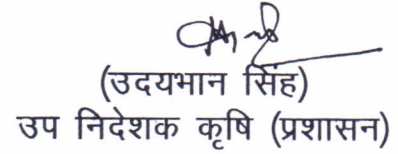 (उदयभान सिंह)
उप निदेशक कृषि (प्रशासन)